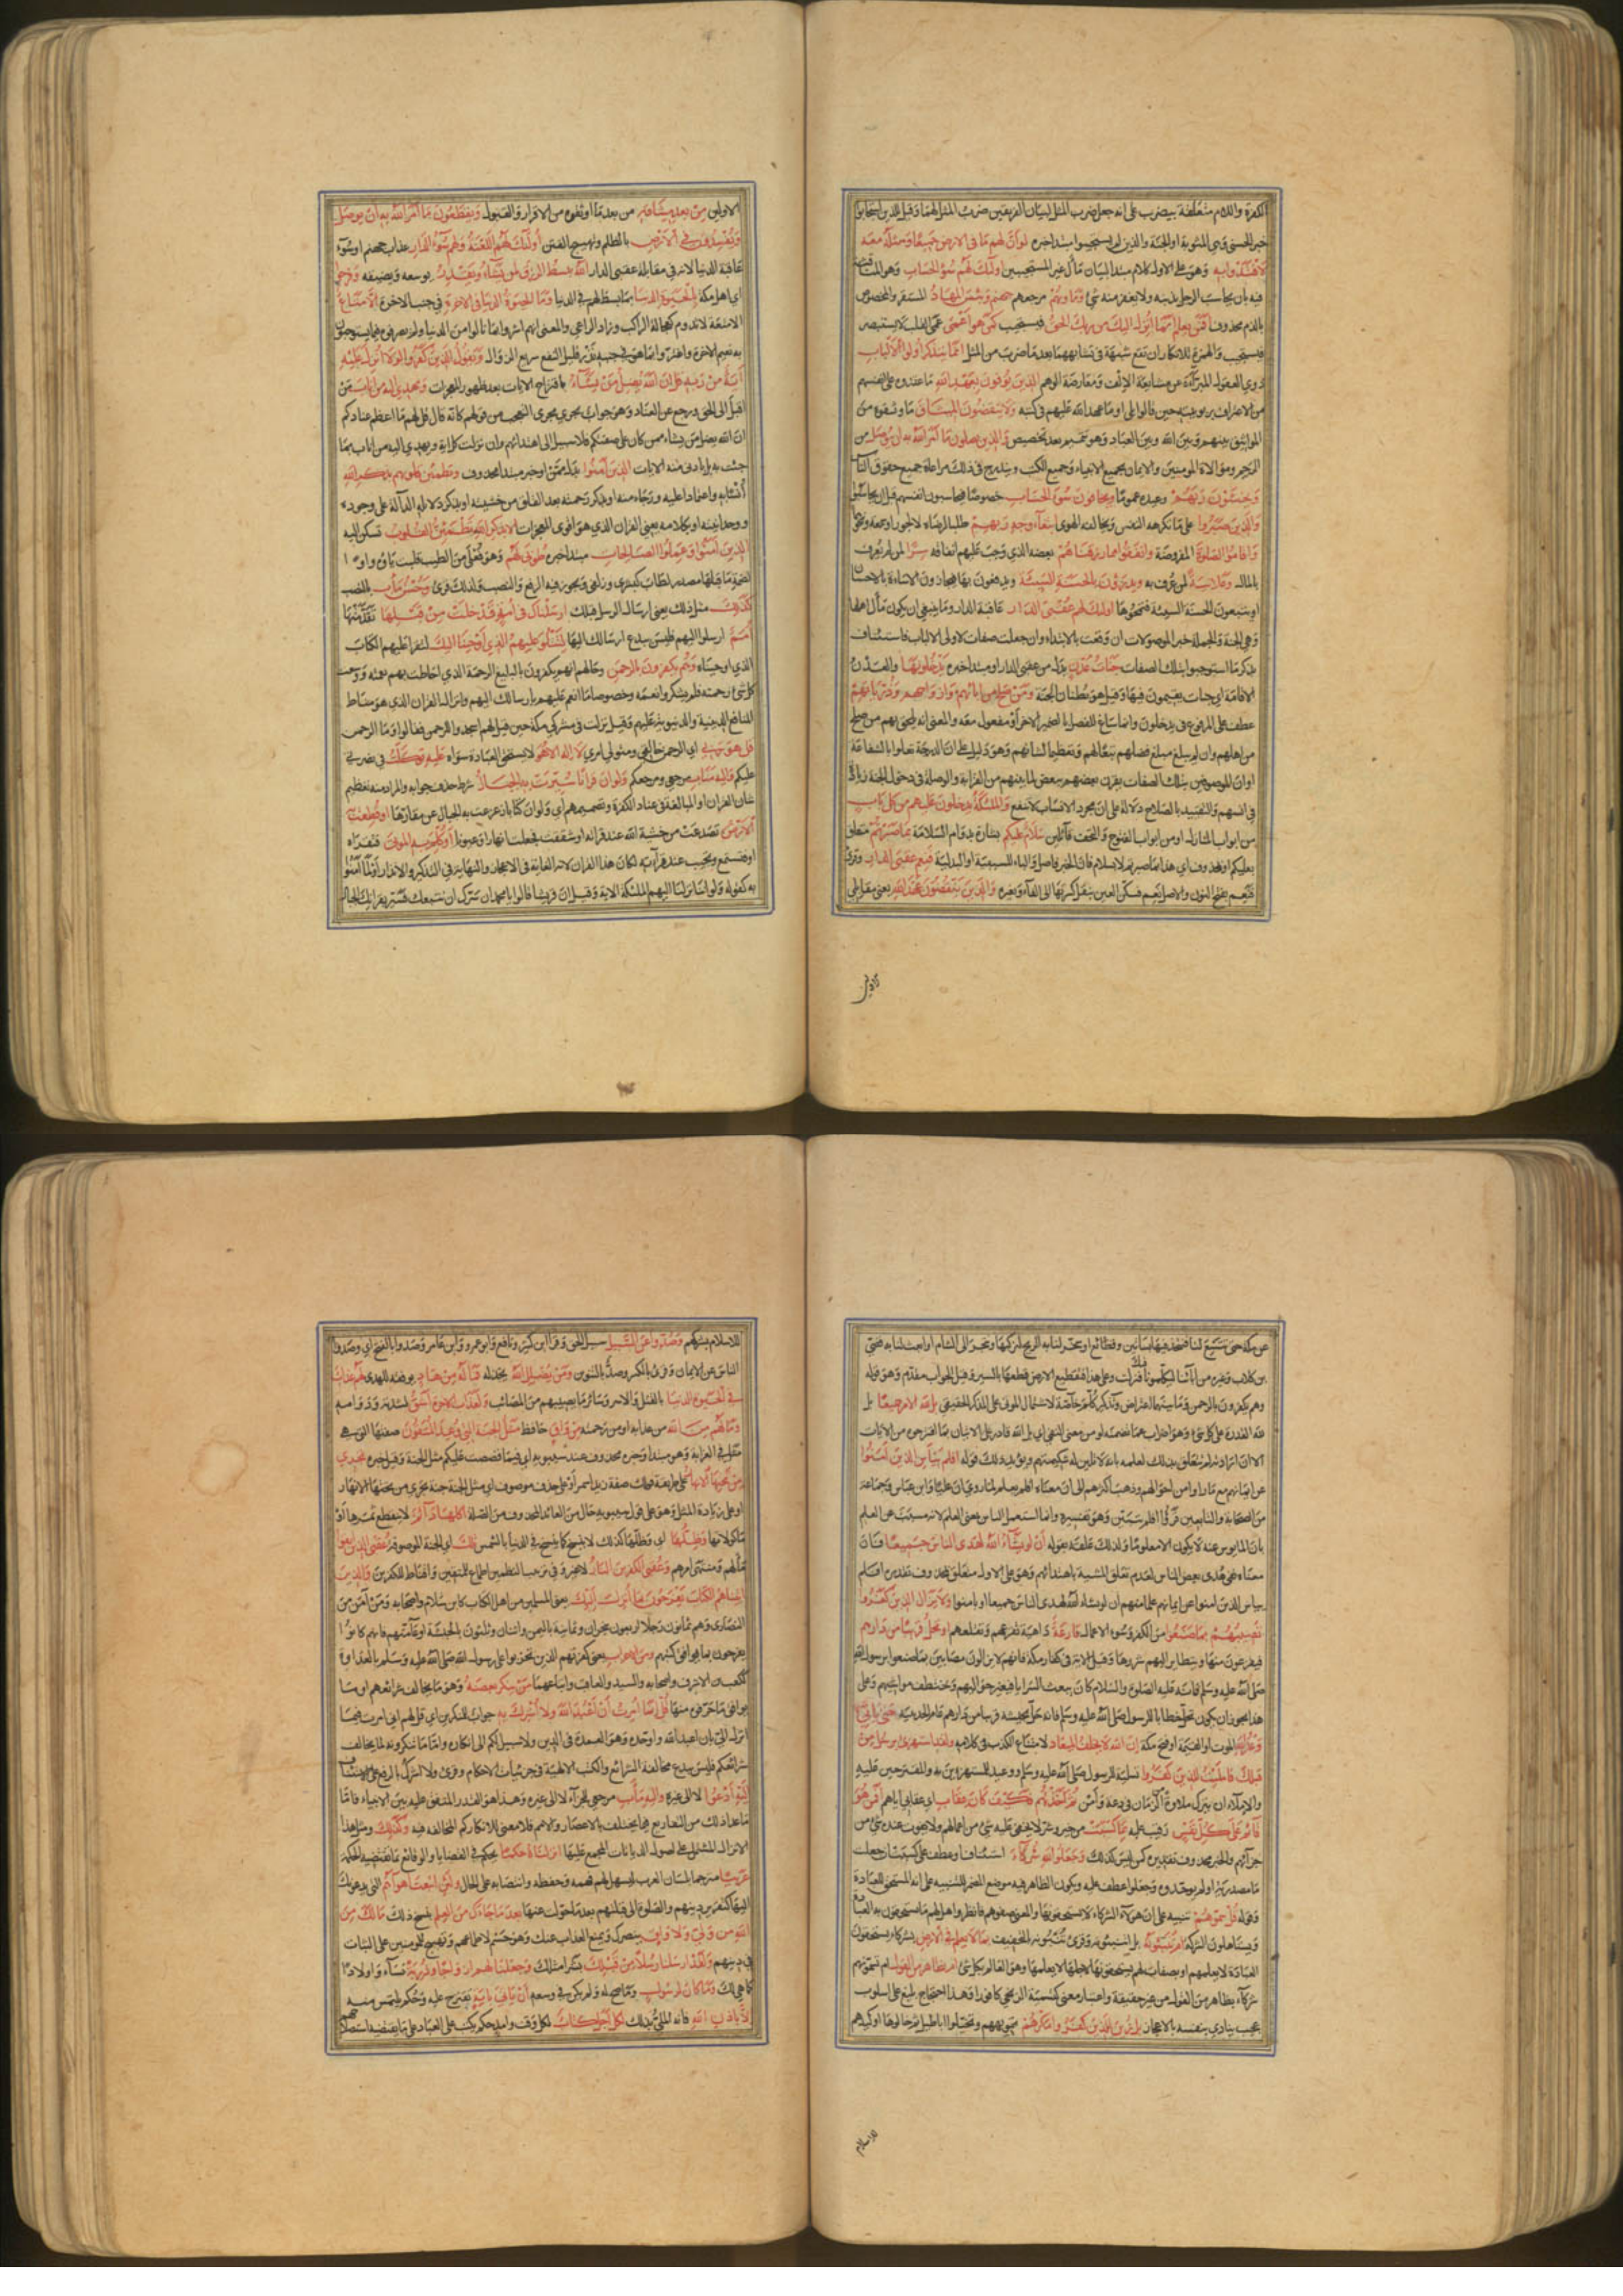 الكفرة واللام متعلقة بيضرب على انه جعل ضرب المثل لبيان الفريقين ضرب المثل لهما وقيل للذين استجابوا
خبر الحسنى وهي المثوبة او الجنة والذين لم يستجيبوا مبتدا خبره لو ان لهم ما في الارض جميعا ومثله معه
لافتدوا به وهو على الاول كلام مبتدا لبيان مآل غير المستجيبين اولئك لهم سوء الحساب وهو المناقشة
فيه بان يحاسب الرجل بذنبه ولا يغفر منه شئ ومأويهم مرجعهم جهنم وبئس المهاد المستقر والمخصوص
بالذم محذوف افمن يعلم انما انزل اليك من ربك الحق فيستجيب كمن هو اعمى عمى القلب لا يستبصر
فيستجيب والهمزة للانكار ان تقع شبهة في تشابههما بعد ما ضرب من المثل انما يتذكر اولوا الالباب
ذوي العقول المبرأة عن مشايعة الالف ومعارضة الوهم الذين يوفون بعهد الله ما عقدوه على انفسهم
من الاعتراف بربوبيته حين قالوا بلى او ما عهد الله عليهم في كتبه ولا ينقضون الميثاق ما وثقوه من
المواثيق بينهم وبين الله وبين العباد وهو تعميم بعد تخصيص والذين يصلون ما امر الله به ان يوصل من
الرحم وموالاة المومنين والايمان بجميع الانبياء وجميع الكتب ويندرج في ذلك مراعاة جميع حقوق الناس
ويخشون ربهم وعيده عموما ويخافون سوء الحساب خصوصا فيحاسبون انفسهم قبل ان يحاسبوا
والذين صبروا على ما تكرهه النفس ويخالفه الهوى ابتغاء وجه ربهم طلبا لرضاه لا لجور او سمعة ونحوها
واقاموا الصلوة المفروضة وانفقوا مما رزقناهم بعضه الذي وجب عليهم انفاقه سرا لمن لم يعرف
بالمال وعلانية لمن عرف به ويدرؤن بالحسنة السيئة ويدفعون بها فيجازون الاساءة بالاحسان
او يتبعون الحسنة السيئة فتمحوها اولئك لهم عقبى الدار عاقبة الدار وما ينبغي ان يكون مآل اهلها
وهي الجنة والجملة خبر الموصولات ان رفعت بالابتداء وان جعلت صفات لاولي الالباب فاستئناف
بذكر ما استوجبوا بتلك الصفات جنات عدن بدل من عقبى الدار او مبتدا خبره يدخلونها والعدن
الاقامة اي جنات يقيمون فيها وقيل هو بطنان الجنة ومن صلح من ابائهم وازواجهم وذرياتهم
عطف على المرفوع في يدخلون وانما ساغ للفصل بالضمير الاخر او مفعول معه والمعنى انه يلحق بهم من صلح
من اهلهم وان لم يبلغ مبلغ فضلهم تبعا لهم وتعظيما لشانهم وهو دليل على ان الدرجة تعلوا بالشفاعة
او ان الموصوفين بتلك الصفات يقرن بعضهم ببعض لما بينهم من القرابة والوصلة في دخول الجنة زيادة
في انسهم والتقييد بالصلاح دلالة على ان مجرد الانساب لا تنفع والملئكة يدخلون عليهم من كل باب
من ابواب المنازل او من ابواب الفتوح والتحف قائلين سلام عليكم بشارة بدوام السلامة بما صبرتم متعلق
بعليكم او بمحذوف اي هذا بما صبرتم لا بسلام فان الخبر فاصل والباء للسببية او البدلية فنعم عقبى الدار وقرئ
فنعم بفتح النون والاصل نعم فسكن العين بنقل كسرتها الى الفاء وبغيره والذين ينقضون عهد الله يعني مقابلي
الاولين
الاولين من بعد ميثاقه من بعد ما اوثقوه من الاقرار والقبول ويقطعون ما امر الله به ان يوصل
ويفسدون في الارض بالظلم وتهييج الفتن اولئك لهم اللعنة ولهم سوء الدار عذاب جهنم او سوء
عاقبة الدنيا لانه في مقابلة عقبى الدار الله يبسط الرزق لمن يشاء ويقدر يوسعه ويضيقه وفرحوا
اي اهل مكة بالحيوة الدنيا بما بسط لهم في الدنيا وما الحيوة الدنيا في الاخرة في جنب الاخرة الا متاع
الا متعة لا تدوم كعجالة الراكب وزاد الراعي والمعنى انهم اشروا بما نالوا من الدنيا ولم يصرفوه فيما يستوجبون
به نعيم الاخرة واغتروا بما هو في جنبه نزر قليل النفع سريع الزوال ويقول الذين كفروا لولا انزل عليه
آية من ربه قل ان الله يضل من يشاء باقتراح الايات بعد ظهور المعجزات ويهدي اليه من اناب من
اقبل الى الحق ورجع عن العناد وهو جواب يجري مجرى التعجب من قولهم كانه قال قل لهم ما اعظم عنادكم
ان الله يضل من يشاء ممن كان على صفتكم فلا سبيل الى اهتدائهم وان نزلت كل اية ويهدي اليه من اناب بما
جئت به بل بادنى منه الايات الذين آمنوا بدل من من او خبر مبتدا محذوف وتطمئن قلوبهم بذكر الله
أنسا به واعتمادا عليه ورجاء منه او بذكر رحمته بعد القلق من خشيته او بذكر دلائله الدالة على وجوده
ووحدانيته او بكلامه يعني القران الذي هو اقوى المعجزات الا بذكر الله تطمئن القلوب تسكن اليه
الذين آمنوا وعملوا الصالحات مبتدا خبره طوبى لهم وهو فعلى من الطيب قلبت ياؤه واوا
لضمة ما قبلها مصدر لطاب كبشرى وزلفى ويجوز فيه الرفع والنصب ولذلك قرئ وحسن مآب بالنصب
كذلك مثل ذلك يعني ارسال الرسل قبلك ارسلناك في امة قد خلت من قبلها تقدمتها
امم ارسلوا اليهم فليس ببدع ارسالك اليها لتتلو عليهم الذي اوحينا اليك لتقرأ عليهم الكتاب
الذي اوحيناه وهم يكفرون بالرحمن وحالهم انهم يكفرون بالبليغ الرحمة الذي احاطت بهم نعمته ووسعت
كل شئ رحمته فلم يشكروا نعمه وخصوصا ما انعم عليهم بارسالك اليهم وانزال القران الذي هو مناط
المنافع الدينية والدنيوية عليهم وقيل نزلت في مشركي مكة حين قيل لهم اسجدوا للرحمن فقالوا وما الرحمن
قل هو ربي اي الرحمن خالقي ومتولي امري لا اله الا هو لا مستحق العبادة سواه عليه توكلت في نصرتي
عليكم واليه متاب مرجعي ومرجعكم ولو ان قرانا سيرت به الجبال شرط حذف جوابه والمراد منه تعظيم
شان القران او المبالغة في عناد الكفرة وتصميمهم اي ولو ان كتابا زعزعت به الجبال عن مقارها او قطعت به
الارض تصدعت من خشية الله عند قراته او شققت فجعلت انهارا وعيونا او كلم به الموتى فتقرأه
او فتسمع وتجيب عند قراته لكان هذا القران لانه الغاية في الاعجاز والنهاية في التذكير والانذار او لما آمنوا
به كقوله ولو اننا نزلنا اليهم الملئكة الاية وقيل ان قريشا قالوا يا محمد ان سرك ان نتبعك فسير بقرانك الجبال
عن مكة حتى تتسع لنا فنتخذ فيها بساتين وقطائع او سخر لنا به الريح لنركبها ونتجر الى الشام او ابعث لنا به قصي
بن كلاب وغيره من آبائنا ليكلمونا فيك فنزلت وعلى هذا فتقطيع الارض قطعها بالسير وقيل الجواب مقدم وهو قوله
وهم يكفرون بالرحمن وما بينهما اعتراض وتذكير كلم خاصة لاشتمال الموتى على المذكر الحقيقي بل لله الامر جميعا بل
لله القدرة على كل شئ وهو اضراب عما تضمنه لو من معنى النفي اي بل الله قادر على الاتيان بما اقترحوه من الايات
الا ان ارادته لم تتعلق بذلك لعلمه بانه لا تلين له شكيمتهم ويؤيد ذلك قوله افلم ييئس الذين آمنوا
عن ايمانهم مع ما راوا من احوالهم وذهب اكثرهم الى ان معناه افلم يعلم لما روي ان عليا وابن عباس وجماعة
من الصحابة والتابعين قرؤا افلم يتبين وهو تفسيره وانما استعمل الياس بمعنى العلم لانه مسبب عن العلم
بان الميئوس عنه لا يكون الا معلوما ولذلك علقه بقوله ان لو يشاء الله لهدى الناس جميعا فان
معناه نفي هدى بعض الناس لعدم تعلق المشية باهتدائهم وهو على الاول متعلق بمحذوف تقديره افلم
يياس الذين امنوا عن ايمانهم علما منهم ان لو يشاء الله لهدى الناس جميعا او بامنوا ولا يزال الذين كفروا
تصيبهم بما صنعوا من الكفر وسوء الاعمال قارعة داهية تقرعهم وتقلعهم او تحل قريبا من دارهم
فيفزعون منها ويتطاير اليهم شررها وقيل الاية في كفار مكة فانهم لا يزالون مصابين بما صنعوا برسول الله
صلى الله عليه وسلم فانه عليه الصلوة والسلام كان يبعث السرايا فيغير حواليهم وتختطف مواشيهم وعلى
هذا يجوز ان يكون تحل خطابا للرسول صلى الله عليه وسلم فانه حل بجيشه قريبا من دارهم عام الحديبية حتى ياتي
وعد الله الموت او القيمة او فتح مكة ان الله لا يخلف الميعاد لامتناع الكذب في كلامه ولقد استهزئ برسل من
قبلك فامليت للذين كفروا تسلية لرسول صلى الله عليه وسلم ووعيد للمستهزئين به والمقترحين عليه
والاملاء ان يترك ملاوة من الزمان في دعة وامن ثم اخذتهم فكيف كان عقاب اي عقابي اياهم افمن هو
قائم على كل نفس رقيب عليه بما كسبت من خير وشر لا يخفى عليه شئ من اعمالهم ولا يفوت عنده شئ من
جزائهم والخبر محذوف تقديره كمن ليس كذلك وجعلوا لله شركاء استئناف او عطف على كسبت ان جعلت
ما مصدرية او لم يوحدوه وجعلوا عطف عليه ويكون الظاهر فيه موضع الضمير للتنبيه على انه المستحق للعبادة
وقوله قل سموهم تنبيه على ان هؤلاء الشركاء لا يستحقونها والمعنى صفوهم فانظروا هل لهم ما يستحقون به العبادة
ويستاهلون الشركة ام تنبئونه بل اتنبئونه وقرئ تنبئونه بالتخفيف بما لا يعلم في الارض بشركاء يستحقون
العبادة لا يعلمهم او بصفات لهم يستحقونها لاجلها لا يعلمها وهو العالم بكل شئ ام بظاهر من القول ام تسمونهم
شركاء بظاهر من القول من غير حقيقة واعتبار معنى كتسمية الزنجي كافورا وهذا احتجاج بليغ على اسلوب
عجيب ينادي بنفسه بالاعجاز بل زين للذين كفروا مكرهم تمويههم وتخيلوا اباطيل ثم خالوها او كيدهم
للاسلام
للاسلام بشركهم وصدوا عن السبيل سبيل الحق وقرا ابن كثير ونافع وابو عمرو وابن عامر وصدوا بالفتح اي وصدوا
الناس عن الايمان وقرئ بالكسر وصد بالتنوين ومن يضلل الله يخذله فما له من هاد يوفقه للهدى لهم عذاب
في الحيوة الدنيا بالقتل والاسر وسائر ما يصيبهم من المصائب ولعذاب الاخرة اشق لشدته ودوامه
وما لهم من الله من عذابه او من رحمته من واق حافظ مثل الجنة التي وعد المتقون صفتها التي هي
مثل في الغرابة وهو مبتدا وخبره محذوف عند سيبويه اي فيما قصصت عليكم مثل الجنة وقيل خبره تجري
من تحتها الانهار على طريقة قولك صفة زيد اسمر او على حذف موصوف اي مثل الجنة جنة تجري من تحتها الانهار
او على زيادة المثل وهو على قول سيبويه حال من العائد المحذوف من الصلة اكلها دائم لا ينقطع ثمرها او
ماكولاتها وظلها اي وظلها كذلك لا ينسخ كما ينسخ في الدنيا بالشمس تلك اي الجنة الموصوفة عقبى الذين اتقوا
مآلهم ومنتهى امرهم وعقبى الكفرين النار لا غير وفي ترتيب النظمين اطماع للمتقين واقناط للكفرين والذين
آتيناهم الكتاب يفرحون بما انزل اليك يعني المسلمين من اهل الكتاب كابن سلام واصحابه ومن آمن من
النصارى وهم ثمانون رجلا اربعون بنجران وثمانية باليمن واثنان وثلثون بالحبشة او عامتهم فانهم كانوا
يفرحون بما يوافق كتبهم ومن الاحزاب يعني كفرتهم الذين تحزبوا على رسول الله صلى الله عليه وسلم بالعداوة
ككعب بن الاشرف واصحابه والسيد والعاقب واشياعهما من ينكر بعضه وهو ما يخالف شرائعهم او ما
يوافق ما حرفوه منها قل انما امرت ان اعبد الله ولا اشرك به جواب للمنكرين اي قل لهم اني امرت فيما
انزل الي بان اعبد الله واوحده وهو العمدة في الدين ولا سبيل لكم الى انكاره واما ما تنكرونه لما يخالف
شرائعكم فليس ببدع مخالفة الشرائع والكتب الالهية في جزئيات الاحكام وقرئ ولا اشرك بالرفع على الاستئناف
اليه ادعوا لا الى غيره واليه مآب مرجعي للجزاء لا الى غيره وهذا هو القدر المتفق عليه بين الانبياء فاما
ما عدا ذلك من التفاريع فمما يختلف بالاعصار والامم فلا معنى لانكاركم المخالفة فيه وكذلك ومثل هذا
الانزال المشتمل على اصول الديانات المجمع عليها انزلناه حكما يحكم في القضايا والوقائع بما تقتضيه الحكمة
عربيا مترجما بلسان العرب ليسهل لهم فهمه وحفظه وانتصابه على الحال ولئن اتبعت اهواءهم التي يدعونك
اليها كتقرير دينهم والصلوة الى قبلتهم بعد ما حولت عنها بعد ما جاءك من العلم بنسخ ذلك ما لك من
الله من ولي ولا واق ينصرك ويمنع العذاب عنك وهو حسم لاطماعهم وتهييج للمومنين على الثبات
في دينهم ولقد ارسلنا رسلا من قبلك بشرا مثلك وجعلنا لهم ازواجا وذرية نساء واولادا
كما هي لك وما كان لرسول وما صح له ولم يكن في وسعه ان ياتي بآية تقترح عليه وحكم يلتمس منه
الا باذن الله فانه الملي بذلك لكل اجل كتاب لكل وقت وامد حكم يكتب على العباد على ما يقتضيه استصلاحهم